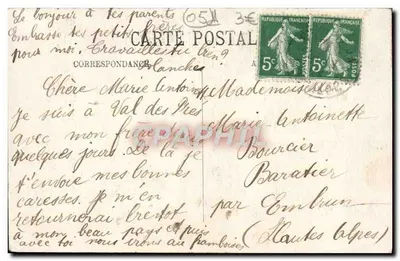 Le bonjour à tes parents
Embrasse tes petits frères
pour moi. Travailles tu
blanches
(051)
3€
CARTE POSTALE
CORRESPONDANCE
RÉPUBLIQUE FRANÇAISE
5c
POSTES
RÉPUBLIQUE FRANÇAISE
5c
POSTES
Chère Marie Antoinette
Je suis à Val des Prés
avec mon
quelques jours. De là je
t'envoie mes bonnes
caresses. Je m'en
retournerai bientôt
à mon beau pays et puis
avec toi nous irons au framboises
Mademoiselle
Marie Antoinette
Bourcier
Baratier
par Embrun
(Hautes Alpes)